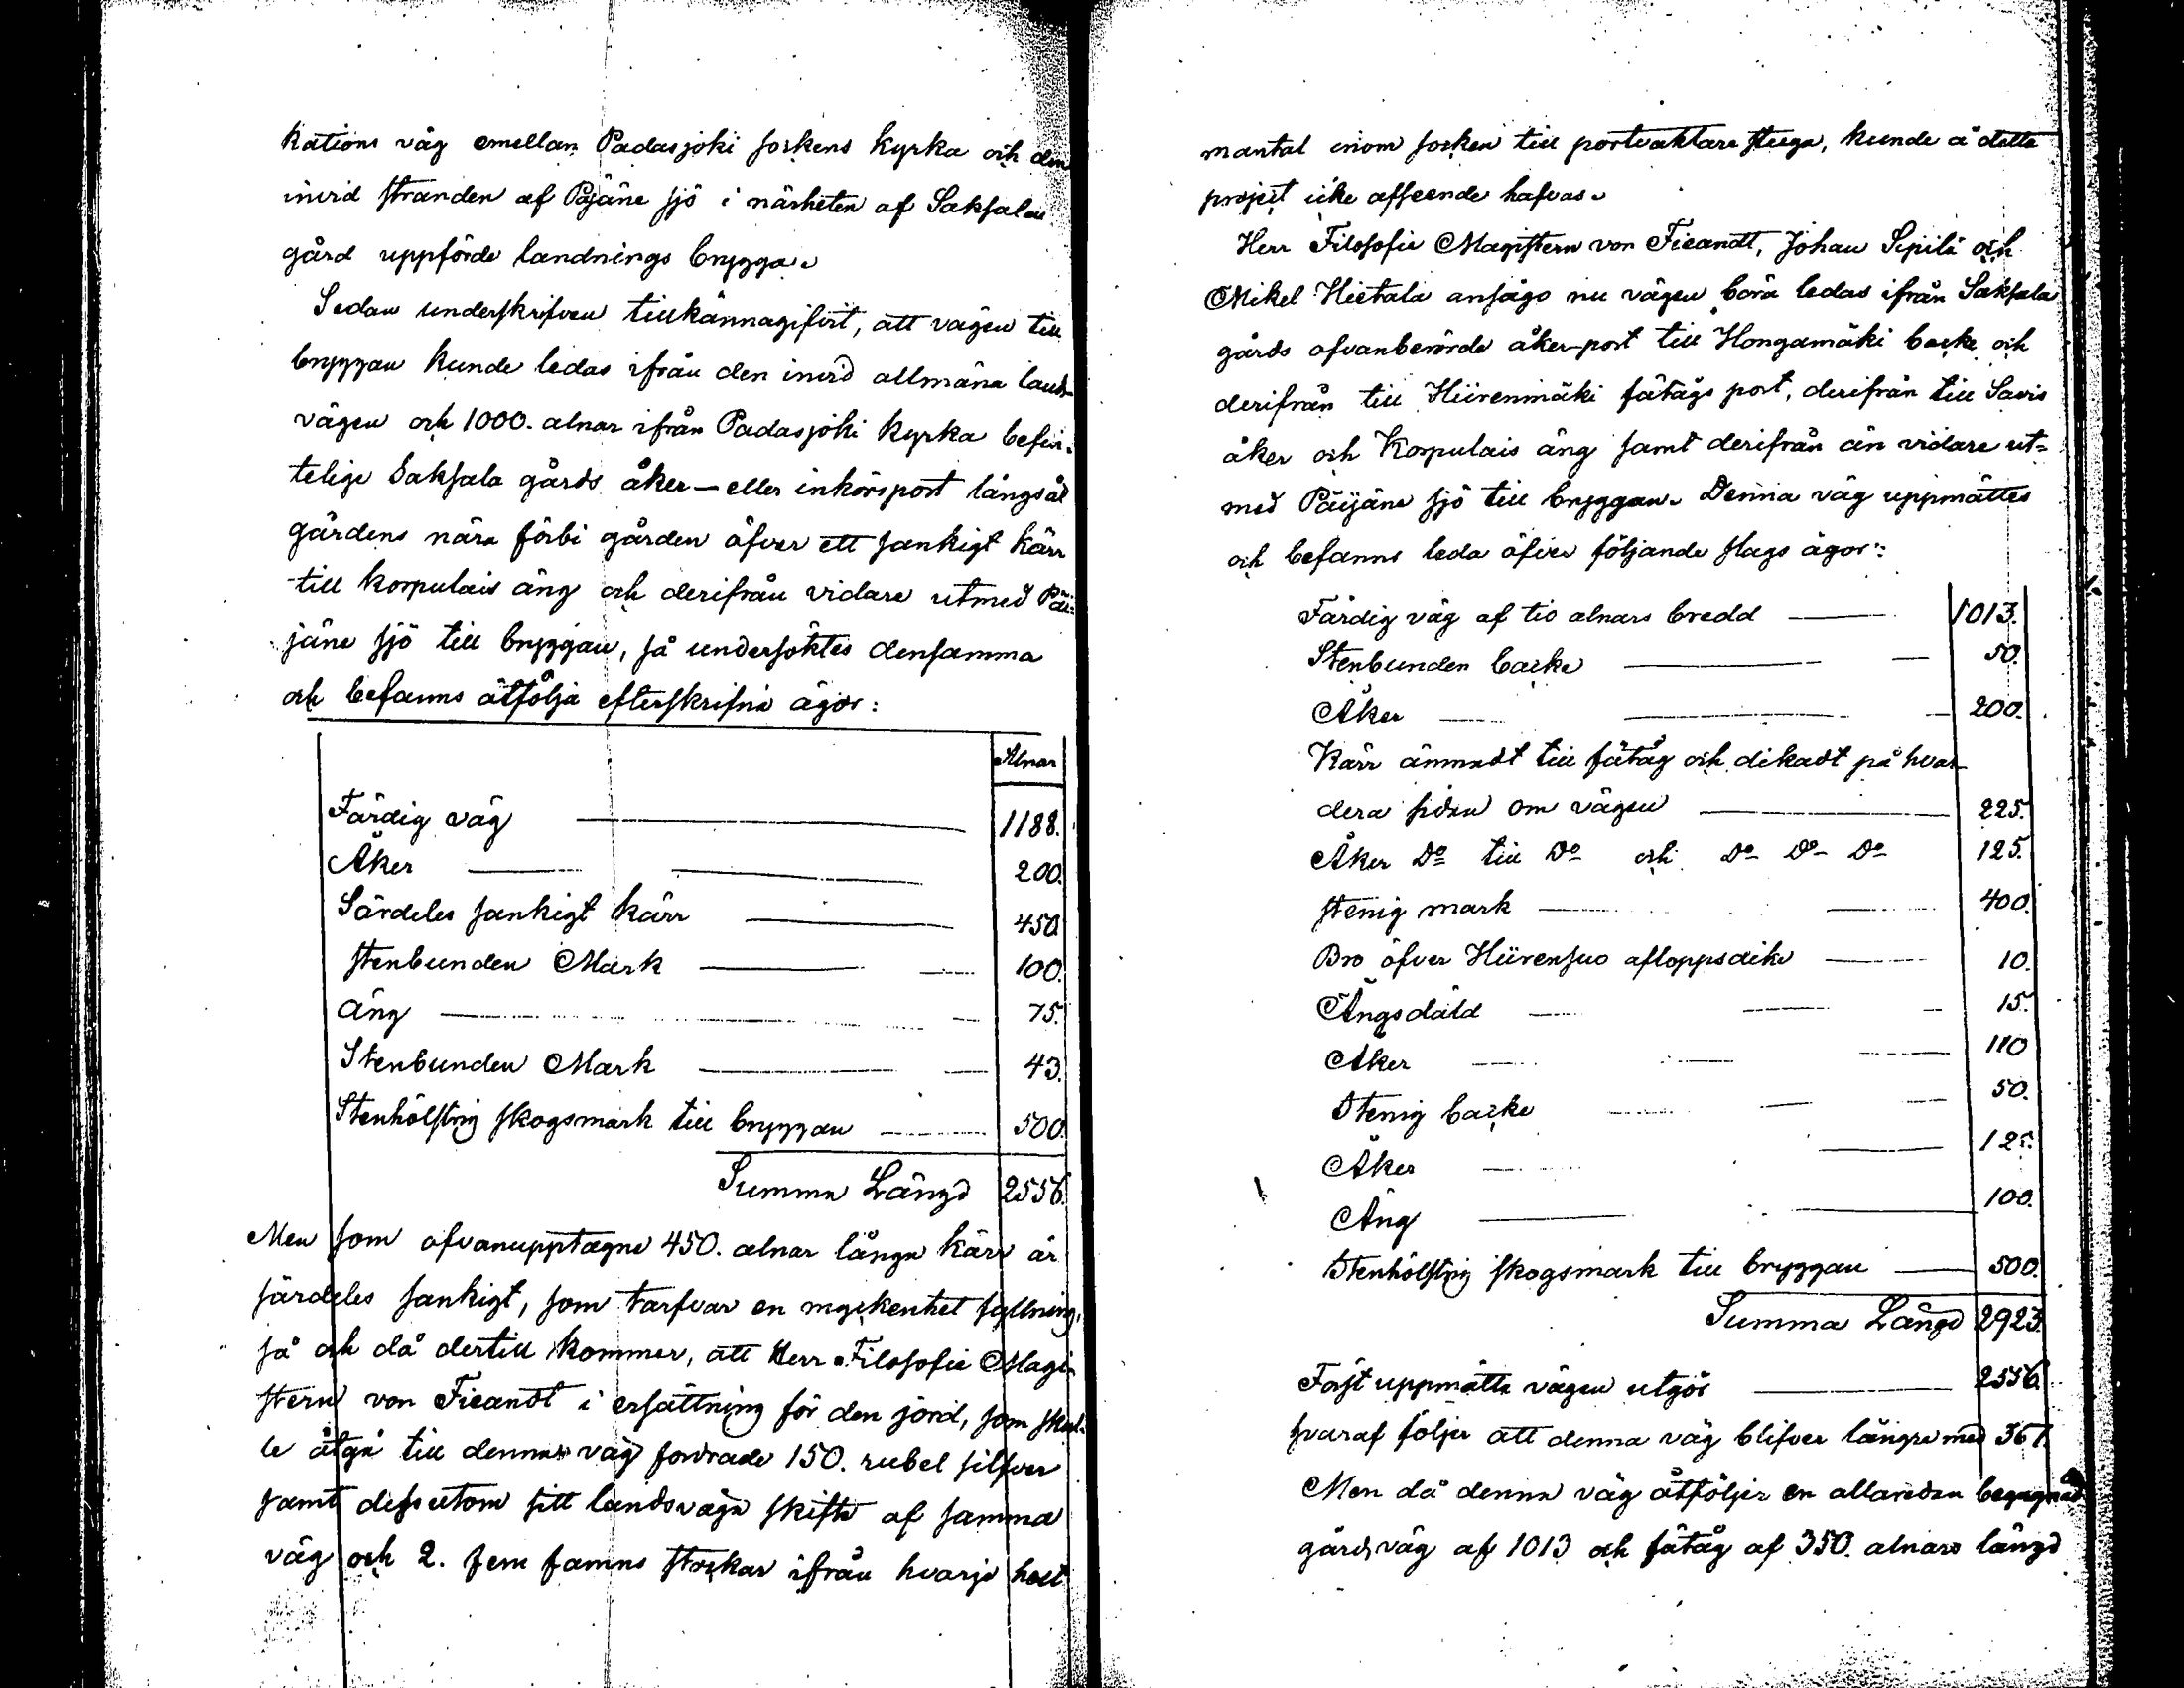 kations väg emellan Padasjoki sockens kyrka och den
invid stranden af Päjäne sjö i närheten af Saksalan
gård uppförde landnings brygga.
Sedan underskrifven tillkännagifvit, att vägen till
bryggan kunde ledas ifrån den invid allmäna lands-
vägen och 1000. alnar ifrån Padasjoki kyrka befin-
telige Saksala gårds åker- eller inkörsport långsåt
gårdens nära förbi gården öfver ett sankigt kärr
till Korpulais äng och derifrån vidare utmed Päi-
jäne sjö till bryggan, så undersöktes densamma
och befanns åtfölja efterskrifna ägor:
Alnar
Färdig väg 1188.
Åker 200.
Särdeles sankigt kärr 450
stenbunden Mark 100.
äng 75.
Stenbunden Mark 43.
Stenhölstrig skogsmark till bryggan 500.
Summa Längd 2556.
Men som ofvanupptagne 450. alnar långa kärr är
särdeles sankigt, som tarfvar en myckenhet fyllning,
så och då dertill kommer, att Herr Filosofie Magi-
stern von Fieandt i ersättning för den jord, som skul-
le åtgå till denna väg fordrade 150. rubel silfver
samt dessutom sitt landsväga skifte af samma
väg och 2. fem famns stockar ifrån hvarje helt
mantal inom socken till portvaktare stuga, kunde å detta
project icke afseende hafvas.
Herr Filosofie Magistern von Fieandt, Johan Sipilä och
Mikel Hietala ansågo nu vägen böra ledas ifrån Saksala
gårds ofvanberörde åker-port till Hongamäki backe och
derifrån till Hiirenmäki fätågs port, derifrån till Savis
åker och Korpulais äng samt derifrån än vidare ut-
med Päijäne sjö till bryggan. Denna väg uppmättes
och befanns leda öfver följande slags ägor:
Färdig väg af tio alnars bredd 1013.
Stenbunden backe 50.
Åker 200.
Kärr ämnadt till fätåg och dikadt på hvar-
dera sidan om vägen 225.
Åker Do till Do och Do Do Do 125.
stenig mark 400.
Bro öfver Hiirensuo afloppsdike 10.
Ängsdäld 15.
Åker 110
Stenig backe 50.
Åker 125.
Äng 100.
Stenhölstrig skogsmark till bryggan 500.
Summa Längd 2923.
Först uppmätta vägen utgör 2556.
hvaraf följer att denna väg blifver längre med 367.
Men då denna väg åtföljer en allaredan begagnad
gårdsväg af 1013 och fätåg af 350. alnars längd